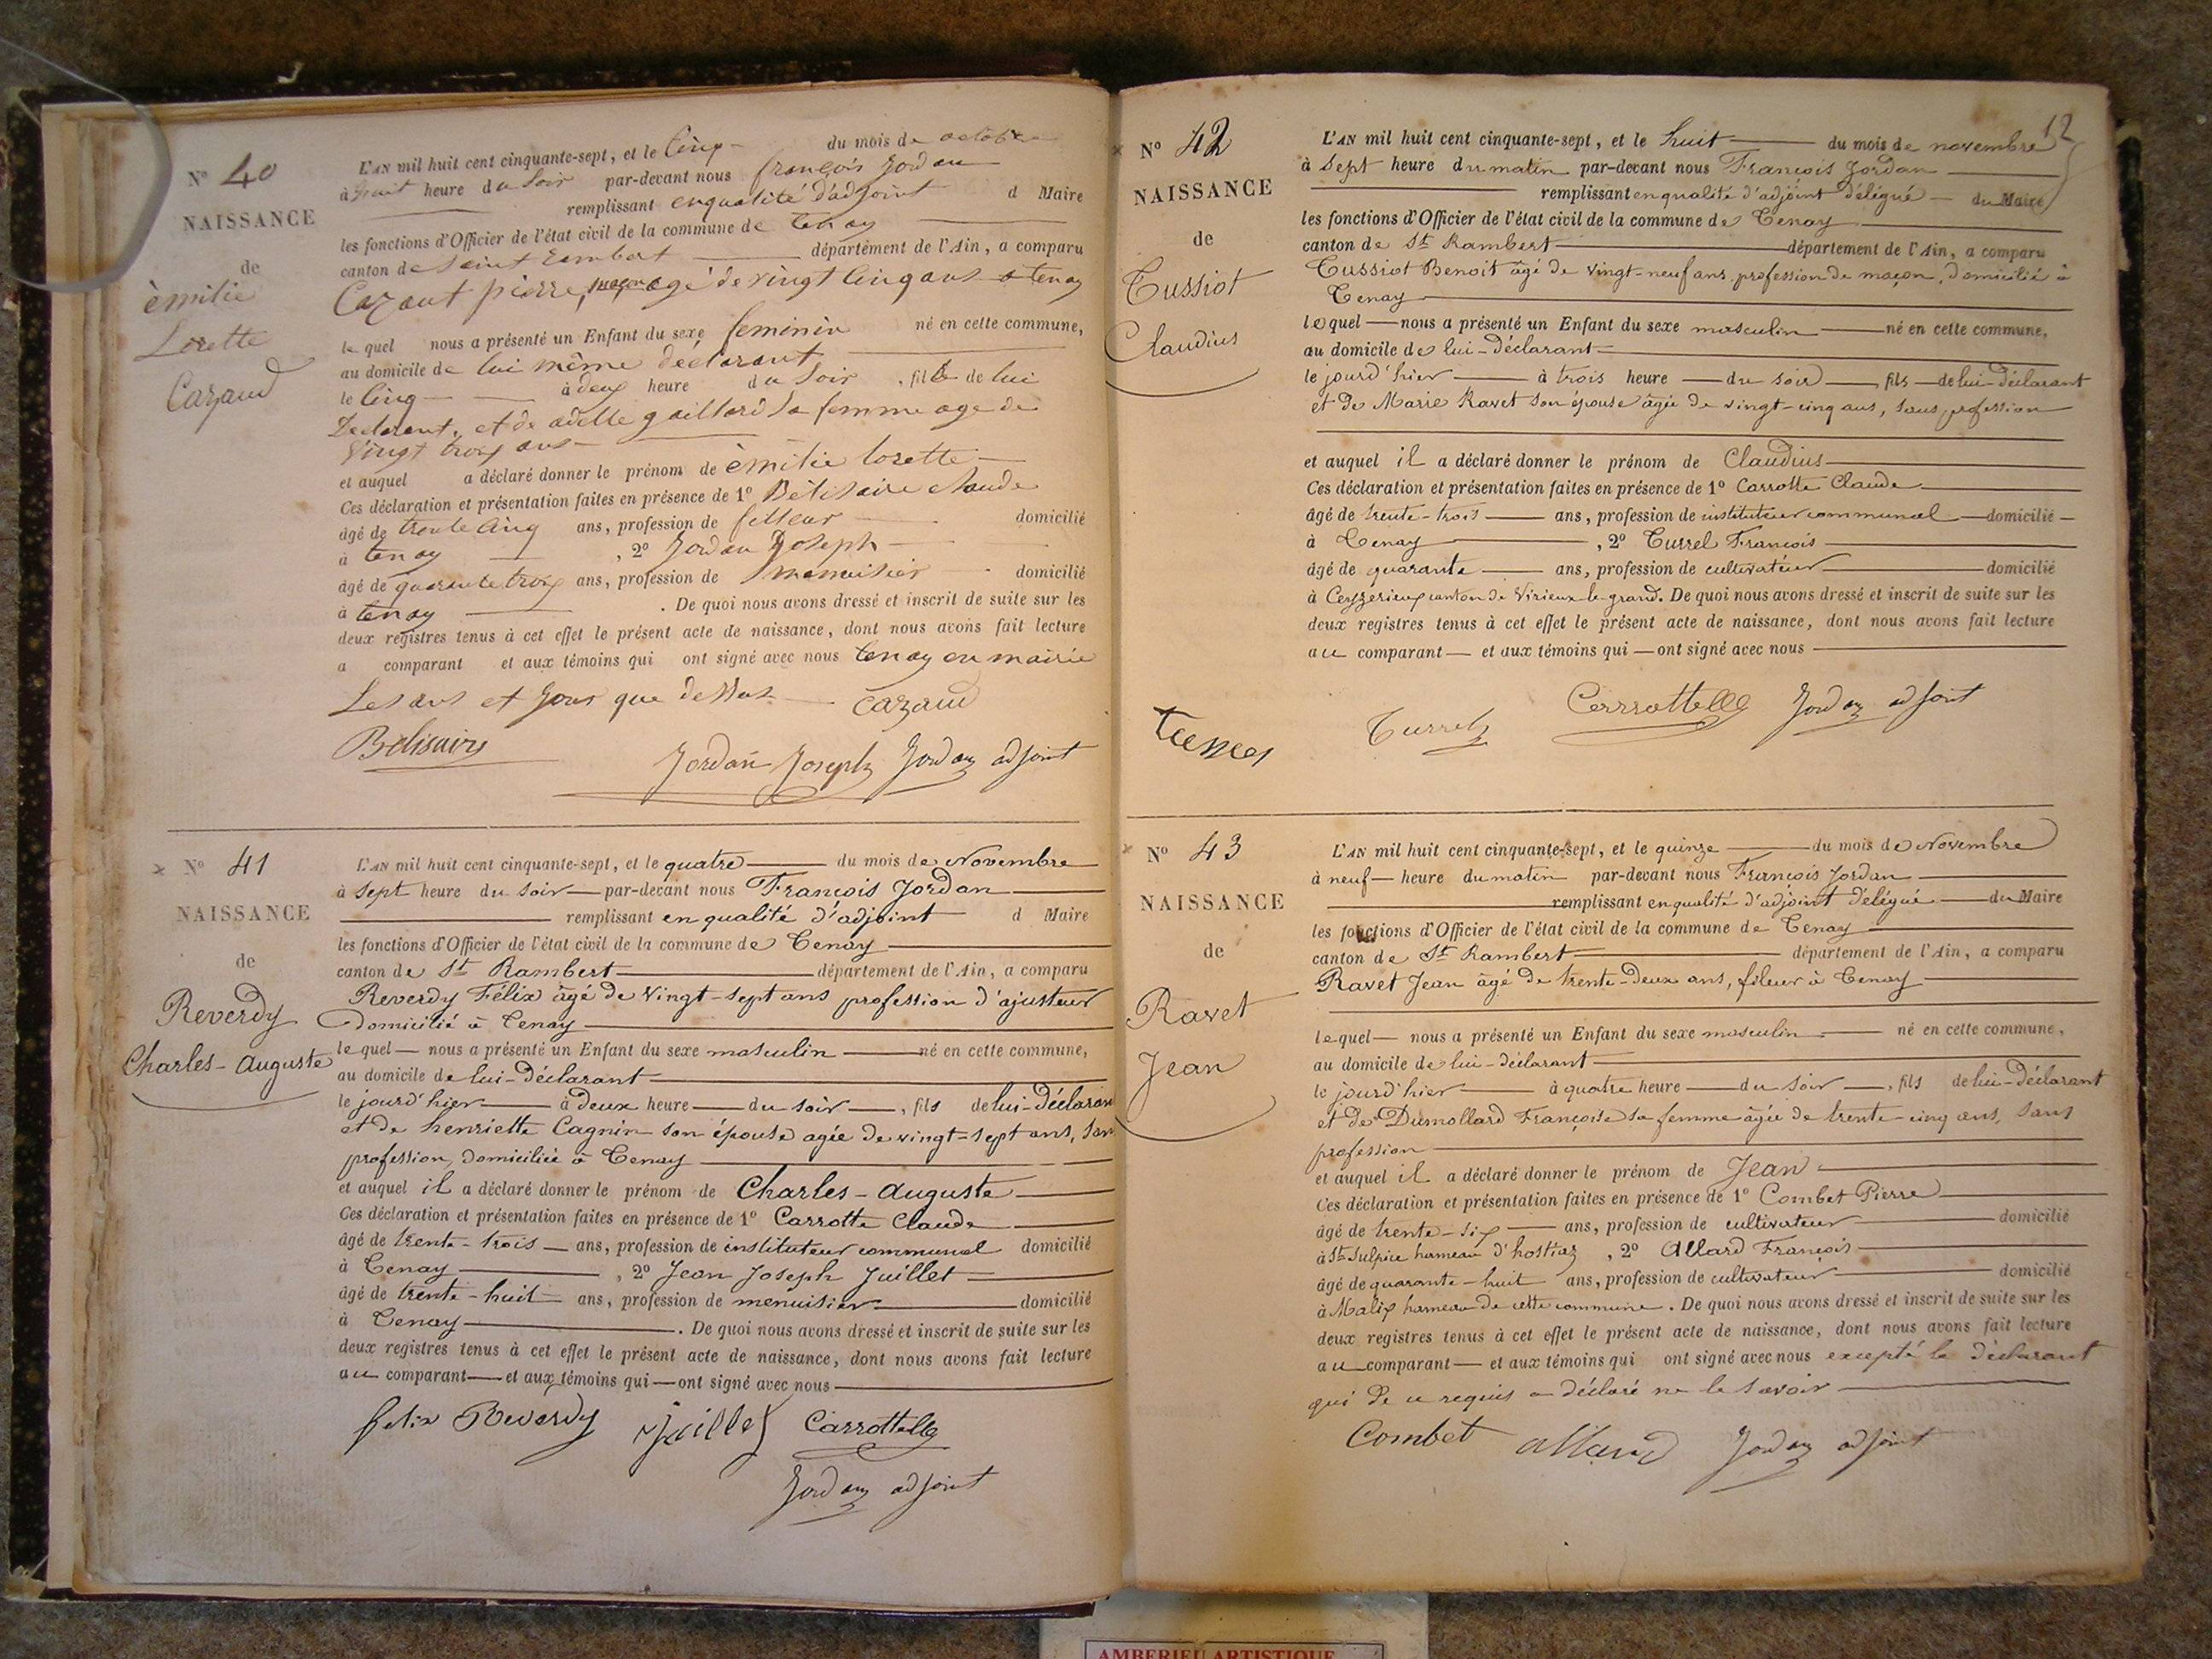 N° 40
NAISSANCE
de
èmilie
Lorette
Cazaud
L'AN mil huit cent cinquante-sept, et le Cinq du mois de octobre
à huit heure du Soir par-devant nous françois Jordan
remplissant enqualité d'adjoint d Maire
les fonctions d'Officier de l'état civil de la commune de tenay
canton de Saint Rambert département de l'Ain, a comparu
Cazaut pierre, maçon agé de vingt Cinq ans a tenay
le quel nous a présenté un Enfant du sexe feminin né en cette commune,
au domicile de lui même declarant
le Cinq à deux heure du Soir, fille de lui
Declarant, et de adelle gaillard Sa femme age de
Vingt trois ans
et auquel a déclaré donner le prénom de èmilie lorette
Ces déclaration et présentation faites en présence de 1° Bélisaire claude
âgé de trente Cinq ans, profession de fileur domicilié
à tenay, 2° Jordan Joseph
âgé de quarante trois ans, profession de menuisier domicilié
à tenay. De quoi nous avons dressé et inscrit de suite sur les
deux registres tenus à cet effet le présent acte de naissance, dont nous avons fait lecture
a comparant et aux témoins qui ont signé avec nous tenay en mairie
Les ans et Jour que dessus Cazaud
Belisaire
Jordan Joseph Jordan adjoint
N° 41
NAISSANCE
de
Reverdy
Charles-Auguste
L'AN mil huit cent cinquante-sept, et le quatre du mois de Novembre
à sept heure du soir par-devant nous François Jordan
remplissant en qualité d'adjoint d Maire
les fonctions d'Officier de l'état civil de la commune de Tenay
canton de St Rambert département de l'Ain, a comparu
Reverdy Félix âgé de vingt-sept ans profession d'ajusteur
Domicilié à Tenay
le quel nous a présenté un Enfant du sexe masculin né en cette commune,
au domicile de lui-déclarant
le jourd'hier à deux heure du soir, fils de lui-Déclaran
et de henriette Cagnin son épouse agée de vingt-sept ans, san
profession, domiciliée à Tenay
et auquel il a déclaré donner le prénom de Charles-Auguste
Ces déclaration et présentation faites en présence de 1° Carrotte Claude
âgé de trente-trois ans, profession de instituteur communal domicilié
à Tenay, 2° Jean Joseph Juillet
âgé de trente-huit ans, profession de menuisier domicilié
à Tenay. De quoi nous avons dressé et inscrit de suite sur les
deux registres tenus à cet effet le présent acte de naissance, dont nous avons fait lecture
au comparant et aux témoins qui ont signé avec nous
felix Reverdy Juillet Carrotte
Jordan adjoint
12
N° 42
NAISSANCE
de
Tussiot
Claudius
L'AN mil huit cent cinquante-sept, et le huit du mois de novembre
à sept heure du matin par-devant nous François Jordan
remplissant en qualité d'adjoint délégué du Maire
les fonctions d'Officier de l'état civil de la commune de Tenay
canton de St Rambert département de l'Ain, a comparu
Tussiot Benoit âgé de vingt-neuf ans, profession de maçon, domicilié à
Tenay
lequel nous a présenté un Enfant du sexe masculin né en cette commune,
au domicile de lui-déclarant
le jourd'hier à trois heure du soir, fils de lui-déclarant
et de Marie Ravet son épouse âgée de vingt-cinq ans, sans profession
et auquel il a déclaré donner le prénom de Claudius
Ces déclaration et présentation faites en présence de 1° Carrotte Claude
âgé de trente-trois ans, profession de instituteur communal domicilié
à Tenay, 2° Turrel François
âgé de quarante ans, profession de cultivateur domicilié
à Ceyzerieux canton de Virieux-le-grand. De quoi nous avons dressé et inscrit de suite sur les
deux registres tenus à cet effet le présent acte de naissance, dont nous avons fait lecture
au comparant et aux témoins qui ont signé avec nous
Turrel Carrotte Jordan adjoint
N° 43
NAISSANCE
de
Ravet
Jean
L'AN mil huit cent cinquante-sept, et le quinze du mois de Novembre
à neuf heure du matin par-devant nous François Jordan
remplissant en qualité d'adjoint délégué du Maire
les fonctions d'Officier de l'état civil de la commune de Tenay
canton de St Rambert département de l'Ain, a comparu
Ravet Jean âgé de trente-deux ans, fileur à Tenay
lequel nous a présenté un Enfant du sexe masculin né en cette commune,
au domicile de lui-déclarant
le jourd'hier à quatre heure du soir, fils de lui-Déclarant
et de Dumollard Françoise sa femme âgée de trente-cinq ans, sans
profession
et auquel il a déclaré donner le prénom de Jean
Ces déclaration et présentation faites en présence de 1° Combet Pierre
âgé de trente-six ans, profession de cultivateur domicilié
à St Sulpice hameau d'hostiaz, 2° Allard François
âgé de quarante-huit ans, profession de cultivateur domicilié
à Malix hameau de cette commune. De quoi nous avons dressé et inscrit de suite sur les
deux registres tenus à cet effet le présent acte de naissance, dont nous avons fait lecture
au comparant et aux témoins qui ont signé avec nous excepté le déclarant
qui de ce requis a déclaré ne le savoir
Combet allard Jordan adjoint
AMBERIEU ARTISTIQUE